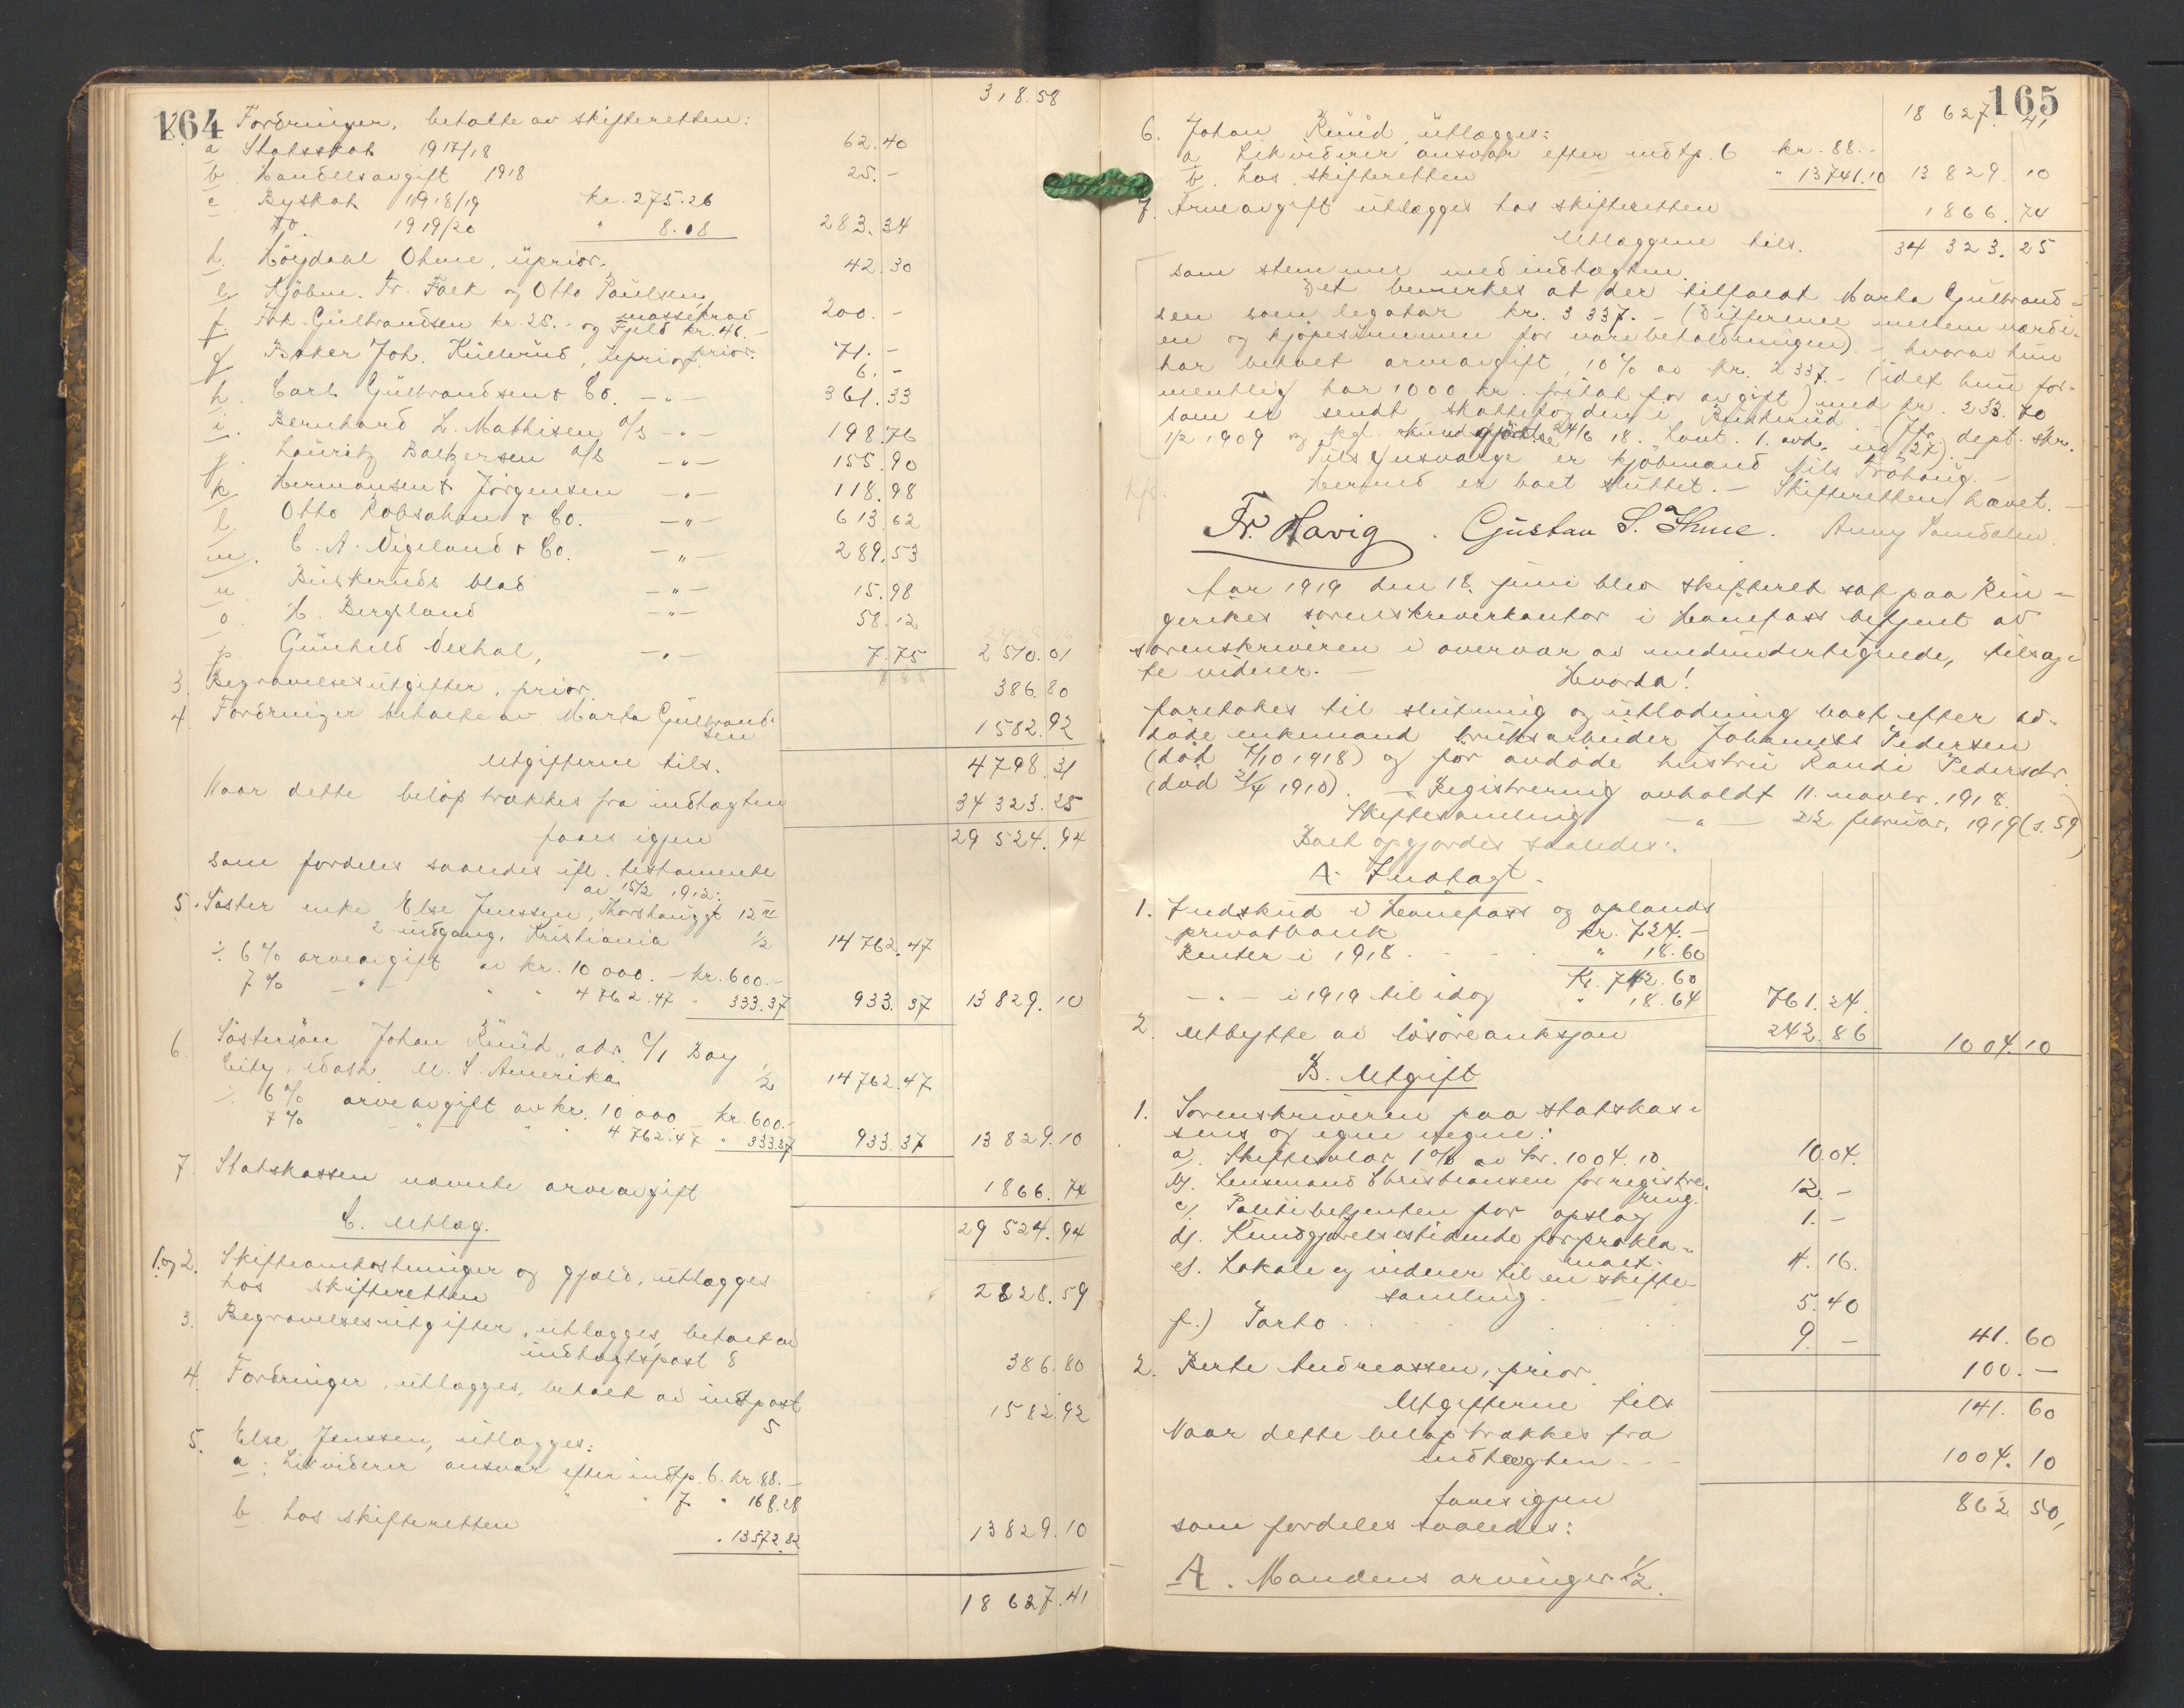 164
318.58
2. Fordringer, betalte av skifteretten:
a Statsskat 1917/18 62.40
b. Handelsavgift 1918 25.-
c Byskat 1918/19 kr. 275.26
do. 1919/20 " 8.08 283.34
d. Höydaal Ohme, uprior. 42.30
e. Kjöbm. Fr. Falk og Otto Paulsen, massekrav 200.-
f. Frk. Gulbrandsen kr. 25.- og Fjeld kr. 46.- prior. 71.-
g Baker Joh. Kullerud, uprior. 6.-
h. Carl Gulbrandsen & Co. -"- 361.33
i. Bernhard L. Mathisen A/S -"- 198.76
j. Lauritz Baltzersen A/S -"- 155.90
k. Hermansen & Jörgensen -"- 118.98
l. Otto Robsahm & Co. -"- 613.62
m. C. A. Nigeland & Co. -"- 289.53
n. Buskeruds blad -"- 15.98
o. H. Bergland -"- 58.12
p. Gunhild Dexhal, -"- 7.75 2510.01
3. Begravelsesutgifter, prior. 386.80
4. Fordringer betalte av Marta Gulbrand-
sen 1582.92
Utgifterne tils. 4798.31
Naar dette belöp trækkes fra indtægten 34 323.25
faaes igjen 29 524.94
som fordeles saaledes ifl. testamente
av 15/2 1912:
5. Söster enke Else Jenssen, Thorshauggt 12
2 indgang, Kristiania 1/2 14 762.47
÷ 6% arveavgift av kr. 10 000.- kr. 600.-
7% -"- " " 4762.47 " 333.37 933.37 13 829.10
6. Söstersön Johan Ruud, adr. C/1 Bay
City, Wash. U. S. Amerika 1/2 14762.47
÷ 6% arveavgift av kr. 10 000 kr. 600.-
7% -"- " " 4762.47 " 333.37 933.37 13 829.10
7. Statskassen nævnte arveavgift 1866.74
29 524.94
C. Utlæg.
1. og 2. Skifteomkostninger og gjæld, utlægges
hos skifteretten 2828.59
3. Begravelsesutgifter, utlægges, betalt av
indtægtspost 8 386.80
4. Fordringer, utlægges, betalt av indtpost
5 1582.92
5. Else Jenssen, utlægges:
a. Likviderer ansvar efter indtp. 6. kr. 88.-
" " 7 " 168.28
b. hos skifteretten " 13572.82 13829.10
18 627.41
165
18 627.41
6. Johan Ruud, utlægges:
a Likviderer ansvar efter indtp. 6 kr. 88.-
b. hos skifteretten " 13741.10 13 829.10
7. Arveavgift utlægges hos skifteretten 1866.74
Utlæggene tils. 34 323.25
som stemmer med indtægten.
Det bemerkes at der tilfaldt Marta Gulbrand-
sen som legatar kr. 3 337.- (Difference mellem værdi-
en og kjöpesummen for varebeholdningen) - hvorav hun
har betalt arveavgift, 10% av kr. 2 337.- (idet hun for-
mentlig har 1000 kr. fritat for avgift) med kr. 233.70
som er sendt skattefogden i Buskerud. (Jfr. dept. skr.
1/2 1909 og kgl. kundgjörelse 24/6 18. Lovt. 1. avd. no 27).
Tilsynsværge er kjöbmand Nils Tröhaug.-
Hermed er boet sluttet. - Skifteretten hævet. -
Fr. Havig. Gustav S. Thue. Anny Sandalen
Aar 1919 den 18. juni blev skifteret sat paa Rin-
gerikes sorenskriverkontor i Hönefoss betjent av
sorenskriveren i overvær av medundertegnede, tilsag-
te vidner. -
Hvorda!
foretokes til slutning og utlodning boet efter av-
döde enkemand bruksarbeider Johannes Pedersen
(död 7/10 1918) og för avdöde hustru Randi Pedersdr.
(död 21/4 1910). - Registrering avholdt 11. novbr. 1918.
Skiftesamling -"- 22. februar. 1919 (s. 59)
Boet opgjordes saaledes:
A. Indtægt.
1. Indskud i Hönefoss og oplands
privatbank kr. 724.-
Renter i 1918 " 18.60
Kr. 742.60
-"- i 1919 til idag " 18.64 761.24
2. Utbytte av lösöreauksjon 242.86 1004.10
B. Utgift
1. Sorenskriveren paa statskas-
sens og egne vegne:
a). Skiftesalær 1% av kr. 1004.10 10.04.
b). Lensmand Christiansen for registre-
ring. 12.-
c). Politibetjenten for opslag 1.-
d). Kundgjörelsestidende for prokla-
maet. 4.16.
e). Lokale og vidner til en skifte-
samling. 5.40
f.) Porto 9.- 41.60
2. Berte Andreassen, prior 100.-
Utgifterne tils 141.60
Naar dette belöp trækkes fra
indtægten 1004.10
faaes igjen 862.50,
som fordeles saaledes:
A. Mandens arvinger 1/2.